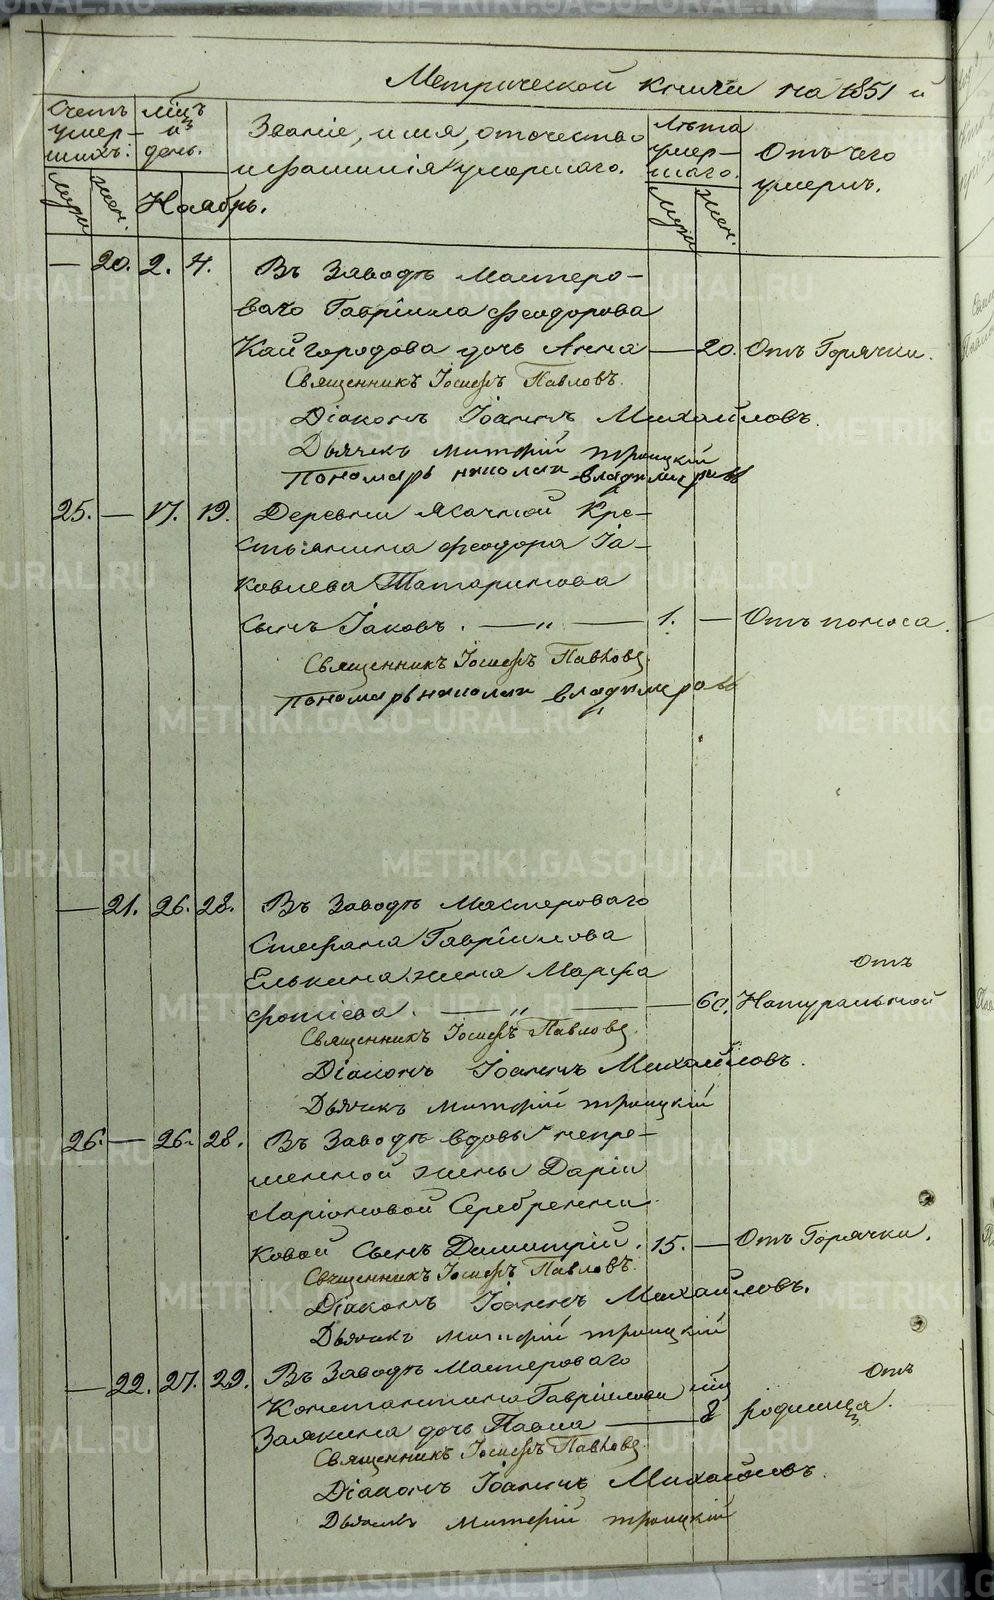 Метрической книги на 1851 й
Счетъ умер-шихъ:
муж.
жен.
М҃цъ и день.
Ноябрь.
Званіе, имя, оточество
и фамилія умершаго.
Лѣта умер-шаго.
муж.
жен.
Отъ чего
умеръ.
— 20. 2. 4. Въ Заводѣ Мастеро-
ваго Гавріила Феодорова
Кайгородова дочь Анна — 20. Отъ Горячки.
Священникъ Іосифъ Павловъ.
Діаконъ Іоаннъ Михайловъ.
Дьячекъ Митрій Троицкій
Пономарь николай владимеровъ
25. — 17. 19. Деревни Ясачной Кре-
стьянина Феодора Іа-
ковлева Татаринова
сынъ Іаковъ. — „ — 1. — Отъ поноса.
Священникъ Іосифъ Павловъ.
Пономарь николай владимеровъ
— 21. 26. 28. Въ Заводѣ Мастероваго
Стефана Гавріилова
Елькина жена Марфа
Фотіева. — „ — — 60. Отъ Натуральной
Священникъ Іосифъ Павловъ.
Діаконъ Іоаннъ Михайловъ.
Дьячекъ Митрій Троицкій
26. — 26. 28. Въ Заводѣ вдовы непре-
менной жены Даріи
Ларіоновой Серебренни
ковой сынъ Димитрій. 15. — Отъ Горячки.
Священникъ Іосифъ Павловъ.
Діаконъ Іоаннъ Михайловъ.
Дьячекъ Митрій Троицкій
— 22. 27. 29. Въ Заводѣ Мастероваго
Константина Гавріилова м҃ц
Заякина дочь Павла — 8 Отъ родимца.
Священникъ Іосифъ Павловъ.
Діаконъ Іоаннъ Михайловъ.
Дьячекъ Митрій Троицкій
METRIKI.GASO-URAL.RU